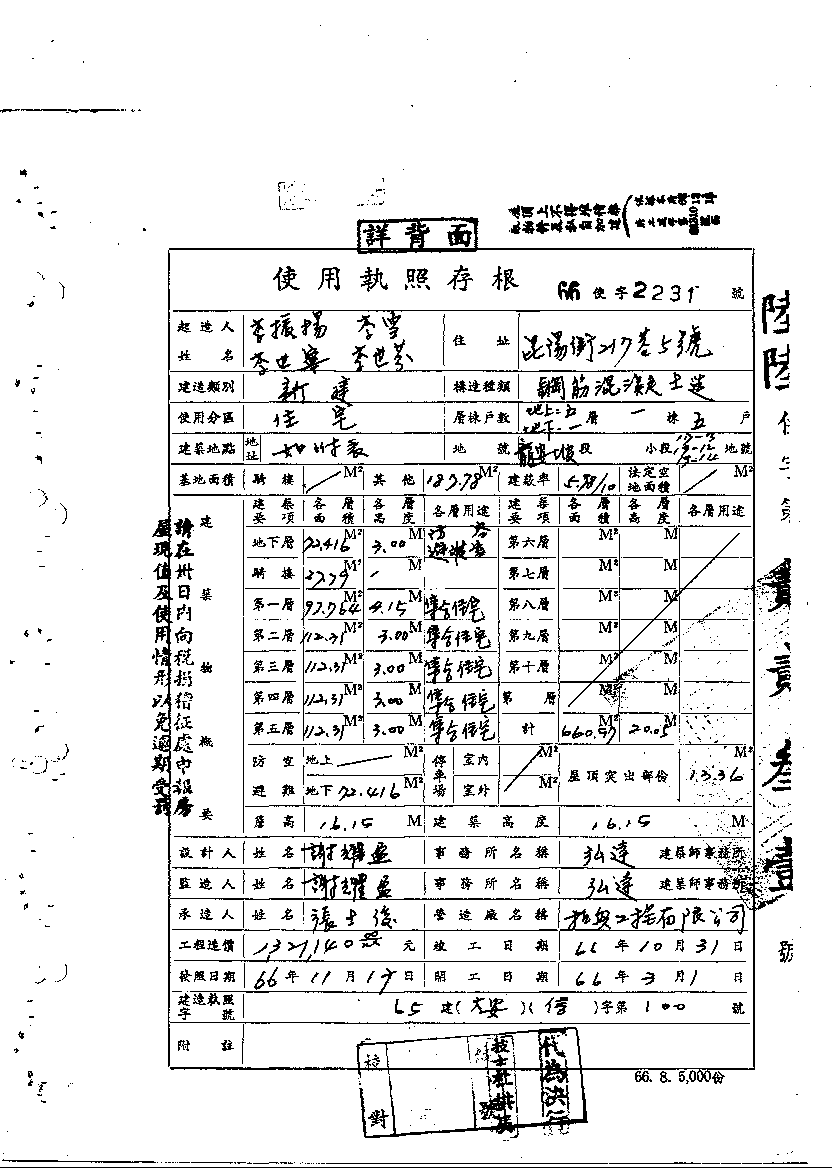 詳背面
使用執照存根
66 使字2231 號
起造人姓名 李振揚 李雪 李世寧 李世芬 住址 昆陽街217巷5號
建造類別 新建 構造種類 鋼筋混凝土造
使用分區 住宅 層棟戶數 地上:五 地下:一 層 一 棟 五 戶
建築地點 地址 如附表 地號 龍安坡段 小段 地號
基地面積 騎樓 / M² 其他 187.78 M² 建蔽率 5.78/10 法定空地面積 / M²
建築物概要
建築要項 各層面積 各層高度 各層用途 建築要項 各層面積 各層高度 各層用途
地下層 72.416 M² 3.00 M 防空避難室 第六層 M² M
騎樓 M² 第七層 M² M
第一層 97.764 M² 4.15 M 集合住宅 第八層 M² M
第二層 112.31 M² 3.00 M 集合住宅 第九層 M² M
第三層 112.31 M² 3.00 M 集合住宅 第十層 M² M
第四層 112.31 M² 3.00 M 集合住宅 第 層 M² M
第五層 112.31 M² 3.00 M 集合住宅 計 660.97 M² 20.05 M
防空避難 地上 M² 停車場 室內 M² 屋頂突出部份 13.36 M²
地下 72.416 M² 室外 M²
簷高 16.15 M 建築高度 16.15 M
設計人 姓名 謝耀盈 事務所名稱 弘達 建築師事務所
監造人 姓名 謝耀盈 事務所名稱 弘達 建築師事務所
承造人 姓名 張士俊 營造廠名稱 工程有限公司
工程造價 1,321,140 元 竣工日期 66年10月31日
發照日期 66年11月17日 開工日期 66年3月1日
建造執照字號 65 建(大安)(信)字第 100 號
附註
核對
代為決行
66. 8. 5,000份
請在卅日內向稅捐稽征處申報房
屋現值及使用情形以免逾期受罰
陸陸使字第貳貳叁壹號